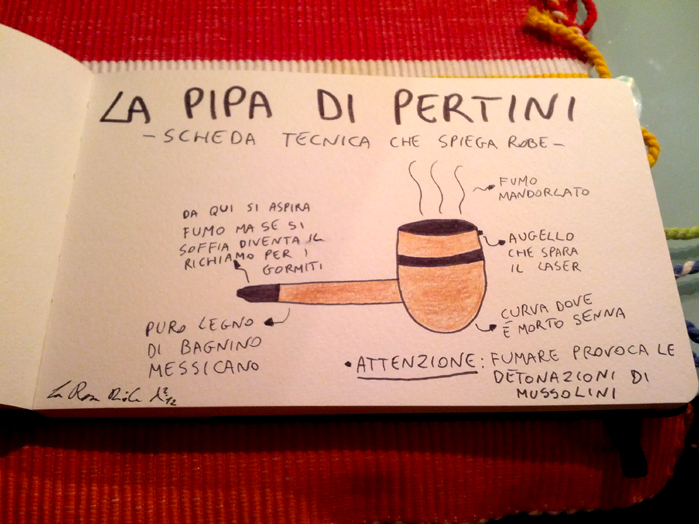 LA PIPA DI PERTINI
- SCHEDA TECNICA CHE SPIEGA ROBE -
DA QUI SI ASPIRA
FUMO MA SE SI
SOFFIA DIVENTA IL
RICHIAMO PER I
GORMITI
FUMO
MANDORLATO
AUGELLO
CHE SPARA
IL LASER
PURO LEGNO
DI BAGNINO
MESSICANO
CURVA DOVE
È MORTO SENNA
• ATTENZIONE: FUMARE PROVOCA LE
DETONAZIONI DI
MUSSOLINI
La Rosa